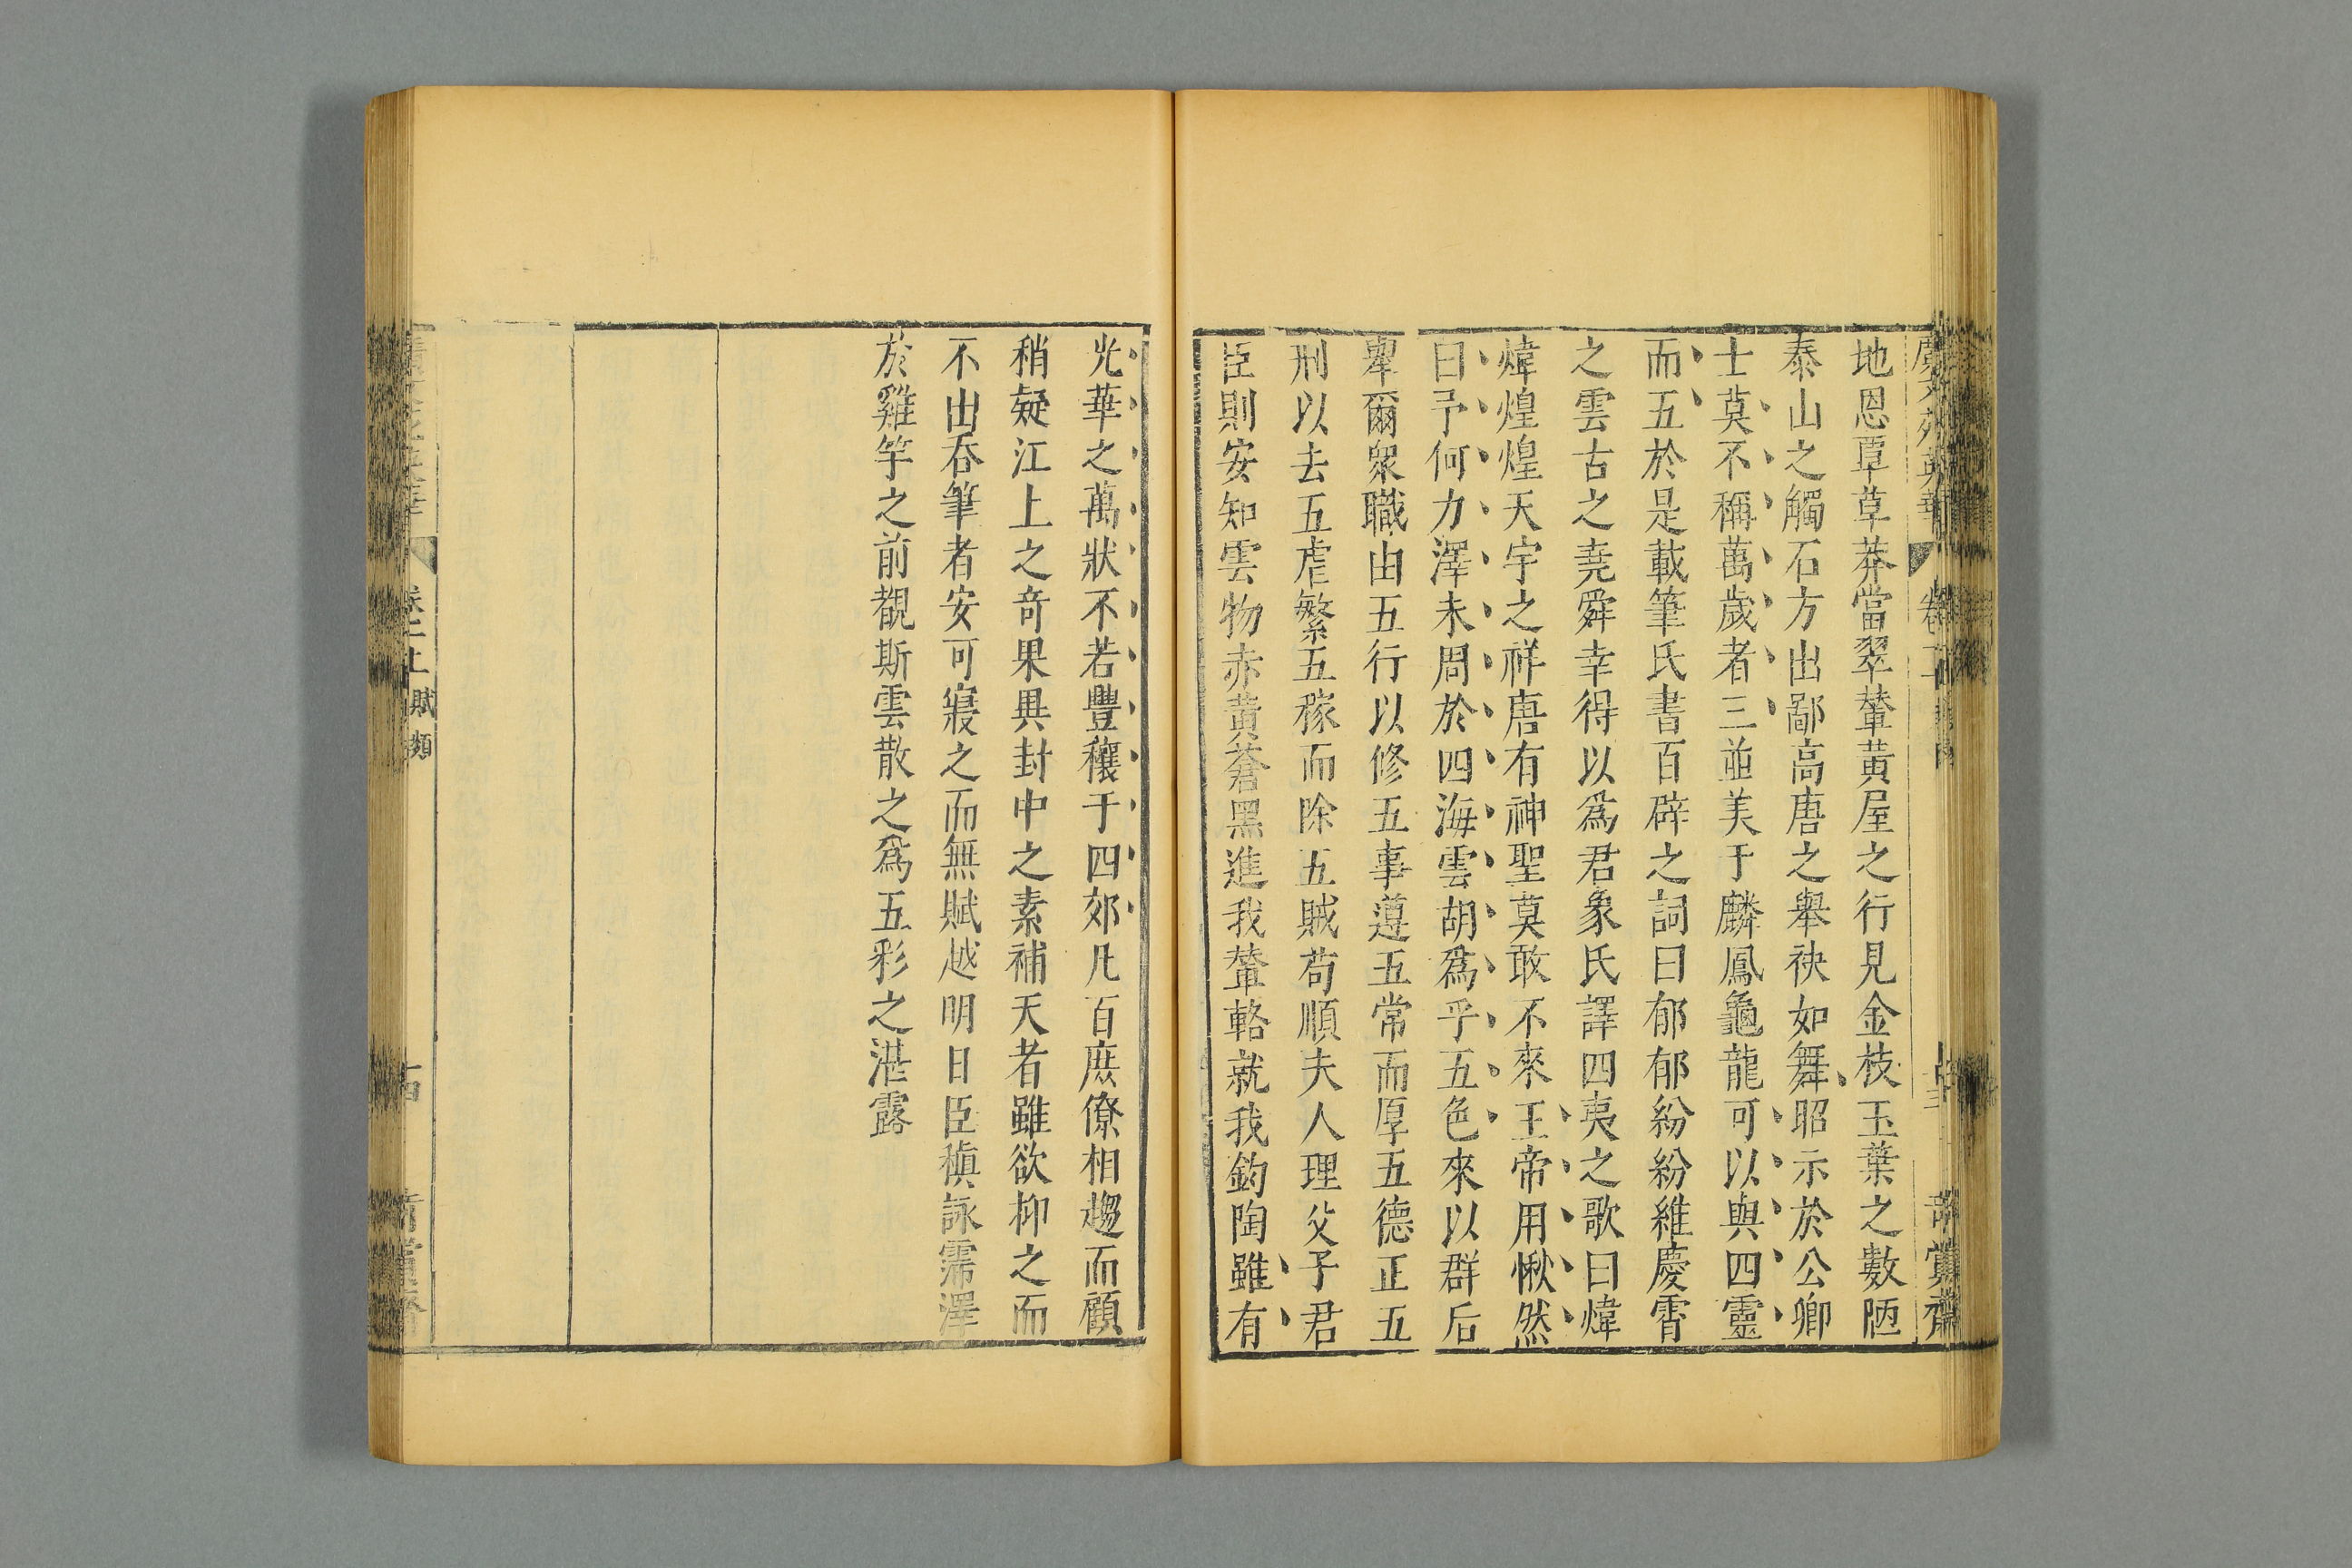 廣文苑英華 卷二上
地恩覃草莽當翠輦黃屋之行見金枝玉葉之數陋
泰山之觸石方出鄙高唐之舉袂如舞昭示於公卿
士莫不稱萬歲者三並美于麟鳳龜龍可以與四靈
而五於是載筆氏書百辟之詞曰郁郁紛紛維慶霄
之雲古之堯舜幸得以爲君象氏譯四夷之歌曰煒
煒煌煌天宇之祥唐有神聖莫敢不來王帝用愀然
曰予何力澤未周於四海雲胡爲乎五色來以群后
舉爾衆職由五行以修五事遵五常而厚五德正五
刑以去五虐繁五稼而除五賊苟順夫人理父子君
臣則安知雲物赤黃蒼黑進我輦輅就我鈞陶雖有
光華之萬狀不若豐穰于四郊凡百庶僚相趨而顧
稍疑江上之奇果異封中之素補天者雖欲抑之而
不出吞筆者安可寢之而無賦越明日臣稹詠霈澤
於雞竿之前覩斯雲散之爲五彩之湛露
卷二上 賦類 十四